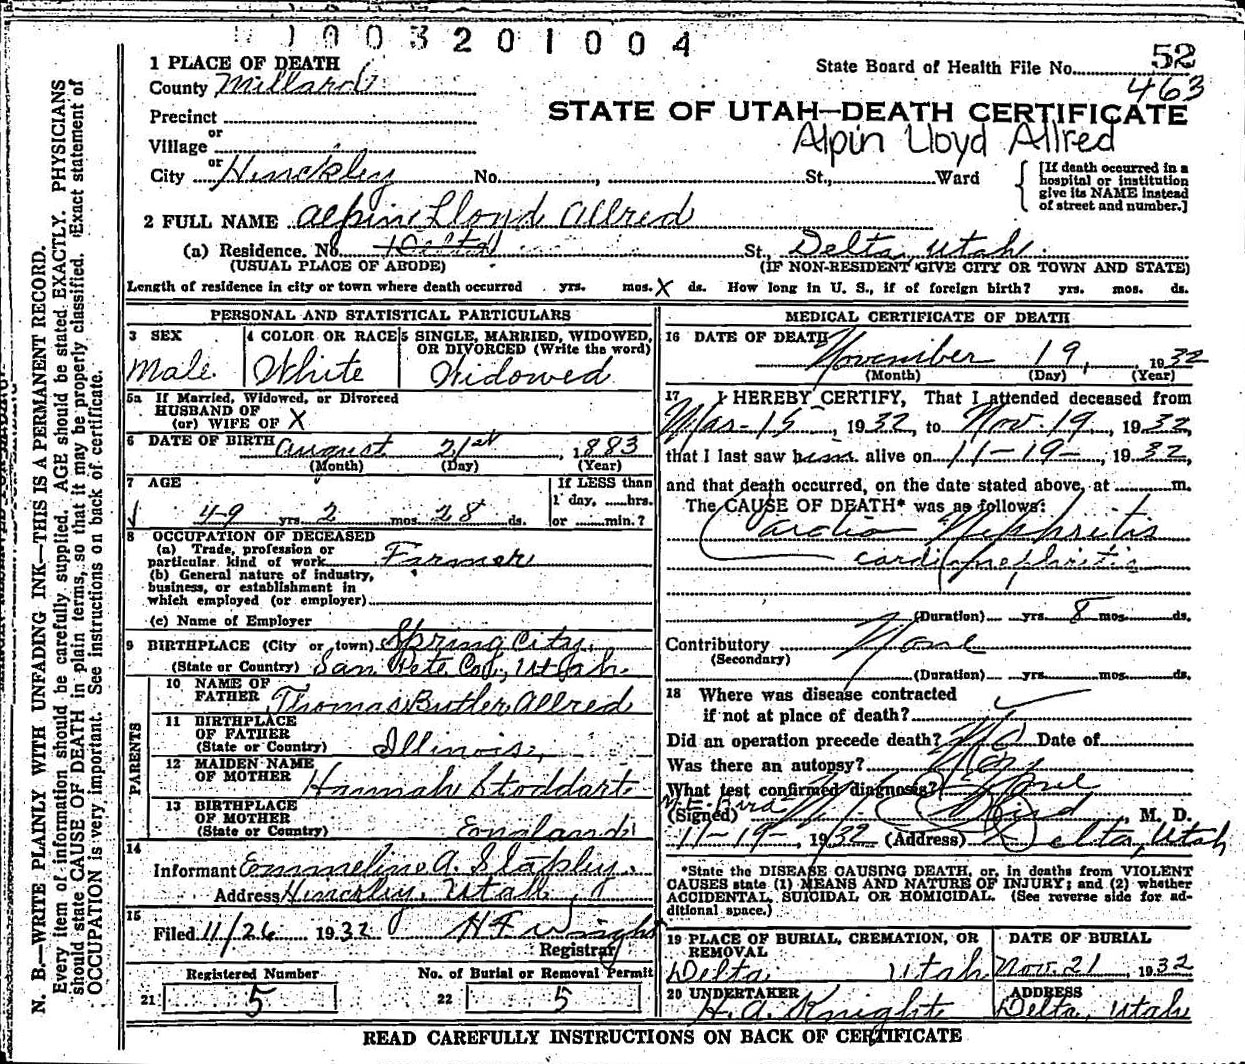 1003201004
52
1 PLACE OF DEATH
State Board of Health File No.
463
County Millard
STATE OF UTAH—DEATH CERTIFICATE
Precinct
Alpin Lloyd Allred
or
Village
or
City Hinckley No. , St., Ward
[If death occurred in a hospital or institution give its NAME instead of street and number.]
2 FULL NAME Alpine Lloyd Allred
(a) Residence. No. Delta St., Delta, Utah
(USUAL PLACE OF ABODE) (IF NON-RESIDENT GIVE CITY OR TOWN AND STATE)
Length of residence in city or town where death occurred yrs. mos. X ds. How long in U. S., if of foreign birth? yrs. mos. ds.
PERSONAL AND STATISTICAL PARTICULARS
3 SEX
Male
4 COLOR OR RACE
White
5 SINGLE, MARRIED, WIDOWED,
OR DIVORCED (Write the word)
Widowed
5a If Married, Widowed, or Divorced
HUSBAND OF
(or) WIFE OF X
6 DATE OF BIRTH August 21st, 1883
(Month) (Day) (Year)
7 AGE
49 yrs. 2 mos. 28 ds.
If LESS than
1 day, hrs.
or min.?
8 OCCUPATION OF DECEASED
(a) Trade, profession or
particular kind of work Farmer
(b) General nature of industry,
business, or establishment in
which employed (or employer)
(c) Name of Employer
9 BIRTHPLACE (City or town) Spring City,
(State or Country) San Pete Co., Utah
PARENTS
10 NAME OF
FATHER Thomas Butler Allred
11 BIRTHPLACE
OF FATHER
(State or Country) Illinois,
12 MAIDEN NAME
OF MOTHER Hannah Stoddart
13 BIRTHPLACE
OF MOTHER
(State or Country) England
14
Informant Emmeline A. Stapley,
Address Hinckley, Utah
15
Filed 11/26 1932 H F Wright
Registrar
Registered Number
21 5
No. of Burial or Removal Permit
22 5
MEDICAL CERTIFICATE OF DEATH
16 DATE OF DEATH
November 19, 1932
(Month) (Day) (Year)
17 I HEREBY CERTIFY, That I attended deceased from
Mar-15, 1932, to Nov. 19, 1932,
that I last saw him alive on 11-19-, 1932,
and that death occurred, on the date stated above, at m.
The CAUSE OF DEATH* was as follows:
Cardio Nephritis
cardionephritis
(Duration) yrs. 8 mos. ds.
Contributory None
(Secondary)
(Duration) yrs. mos. ds.
18 Where was disease contracted
if not at place of death?
Did an operation precede death? No Date of
Was there an autopsy? No
What test confirmed diagnosis? None
M. E. Bird
(Signed) Bird, M. D.
11-19-, 1932 (Address) Delta, Utah
*State the DISEASE CAUSING DEATH, or, in deaths from VIOLENT
CAUSES state (1) MEANS AND NATURE OF INJURY; and (2) whether
ACCIDENTAL, SUICIDAL OR HOMICIDAL. (See reverse side for ad-
ditional space.)
19 PLACE OF BURIAL, CREMATION, OR
REMOVAL
Delta Utah
DATE OF BURIAL
Nov. 21, 1932
20 UNDERTAKER
H. A. Knight
ADDRESS
Delta, Utah
READ CAREFULLY INSTRUCTIONS ON BACK OF CERTIFICATE
N. B.—WRITE PLAINLY WITH UNFADING INK—THIS IS A PERMANENT RECORD.
Every item of information should be carefully supplied. AGE should be stated EXACTLY. PHYSICIANS
should state CAUSE OF DEATH in plain terms, so that it may be properly classified. Exact statement of
OCCUPATION is very important. See instructions on back of certificate.